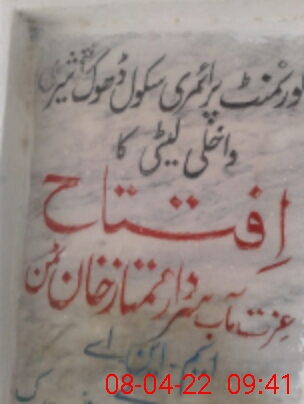 گورنمنٹ پرائمری سکول ڈھوک شیر
داخلی لیٹی کا
افتتاح
عزت مآب سردار ممتاز خان ٹمن
ایم۔این۔اے
08-04-22 09:41